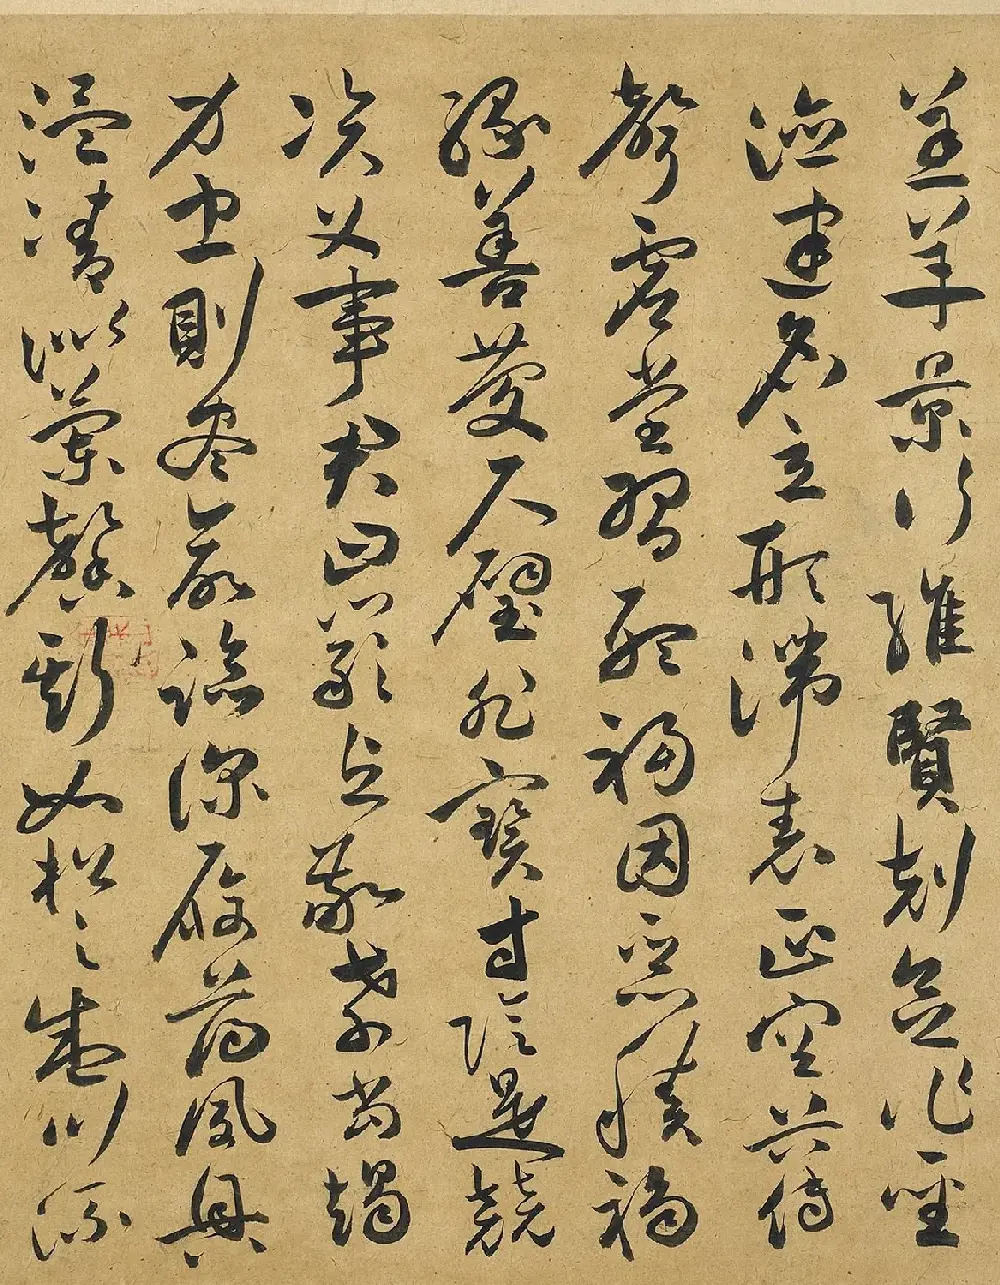 羔羊景行維賢剋念作聖
德建名立形端表正空谷傳
聲虛堂習聽禍因惡積福
緣善慶尺璧非寶寸陰是競
資父事君曰嚴與敬孝當竭
力忠則盡命臨深履薄夙興
溫清似蘭馨斯如松之盛川流